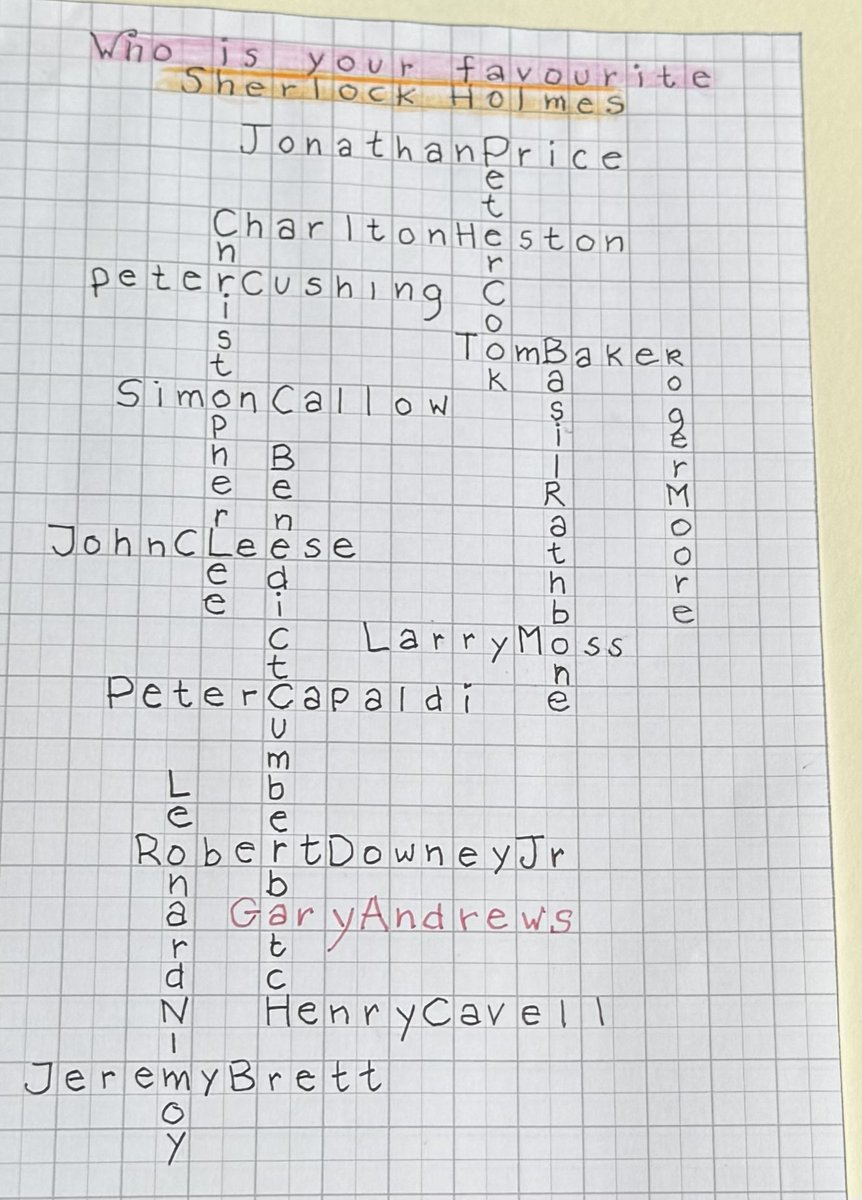 Who is your favourite
Sherlock Holmes
JonathanPrice
PeterCooK
CharltonHeston
ChristoPherLee
peterCushing
TomBaKeR
BasilRathbone
RogerMoore
SimonCallow
BenedictCumberbatcH
JohnCLeese
LarryMoss
PeterCapaldi
LeonardNimoy
RobertDowneyJr
GaryAndrews
HenryCavell
JeremyBrett